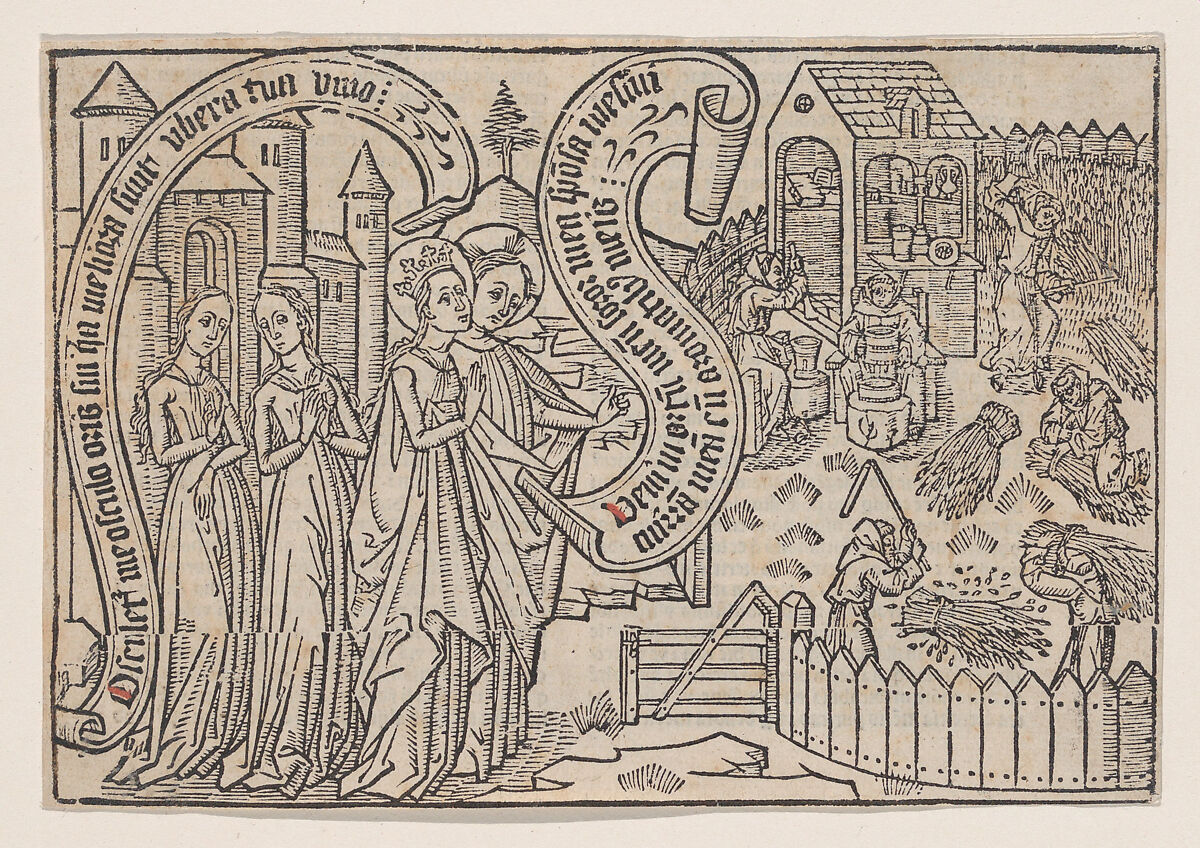 Osculet᷑ me osculo oris sui q̄ meliora sunt vbera tua vino:
Veni in ortū meū soror mea spōsa messui
mirrā meā cū aromatibꝰ meis: